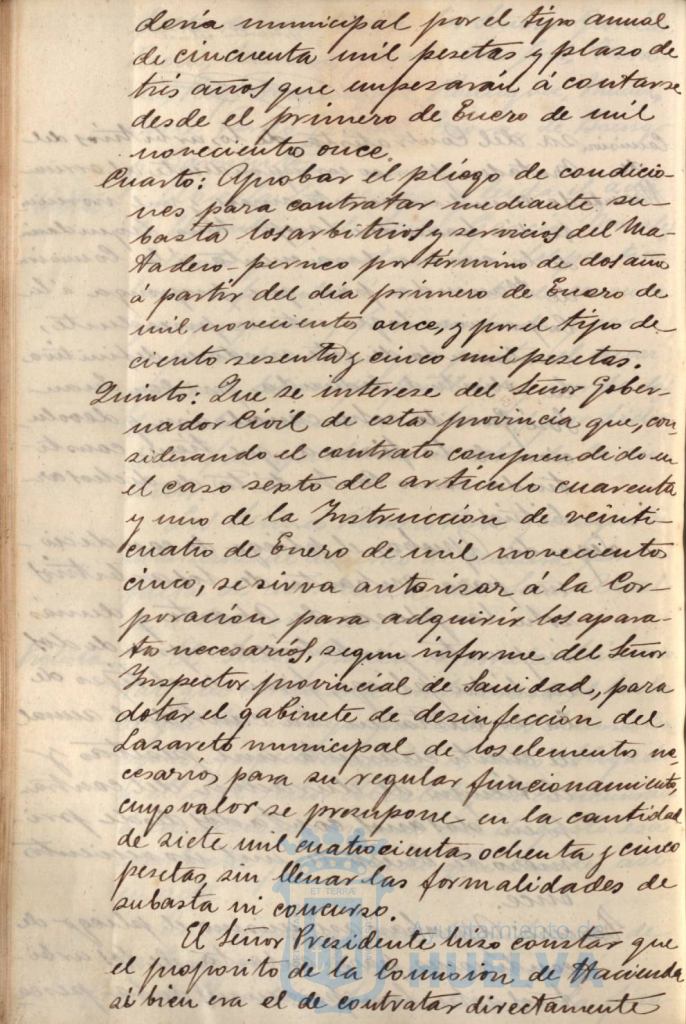 dería municipal por el tipo anual
de cincuenta mil pesetas y plazo de
trés años que empesarán á contarse
desde el primero de Enero de mil
noveciento once.
Cuarto: Aprobar el pliego de condicio-
nes para contratar mediante su-
basta los arbitrios y servicios del Ma-
tadero-perneo por término de dos año
á partir del dia primero de Enero de
mil novecientos once, y por el tipo de
ciento sesenta y cinco mil pesetas.
Quinto: Que se interese del Señor Gober-
nador Civil de esta provincia que, con-
siderando el contrato comprendido en
el caso sexto del artículo cuarenta
y uno de la Instrucción de veinti-
cuatro de Enero de mil novecientos
cinco, se sirva autorisar á la Cor-
poración para adquirir los apara-
tos necesarios, segun informe del Señor
Inspector provincial de Sanidad, para
dotar el gabinete de desinfección del
Lazareto municipal de los elementos ne-
cesarios para su regular funcionamiento,
cuyo valor se presupone en la cantidad
de siete mil cuatrocientas ochenta y cinco
pesetas, sin llenar las formalidades de
subasta ni concurso.
El Señor Presidente hiso constar que
el proposito de la Comisión de Hacienda
si bien era el de contratar directamente
ET TERRÆ
Ayuntamiento de
HUELVA